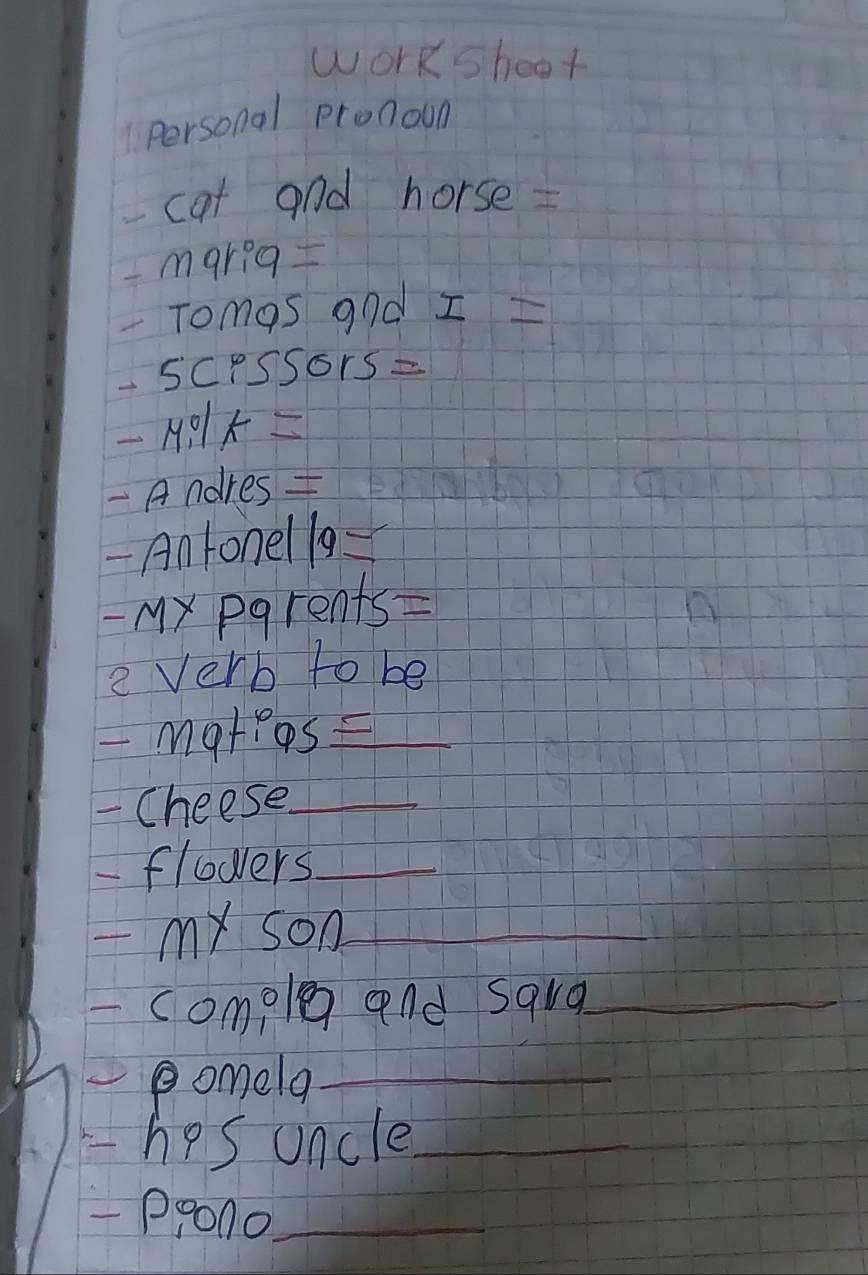 Worksheet
1. Personal pronoun
- cat and horse =
- maria =
- Tomas and I =
- Scissors =
- Milk =
- Andres =
- Antonella =
- My parents =
2 Verb to be
- matias = ___
- Cheese ___
- flowers ___
- my son ___
- Comila and sara ___
- Pamela ___
- his uncle ___
- Piano ___